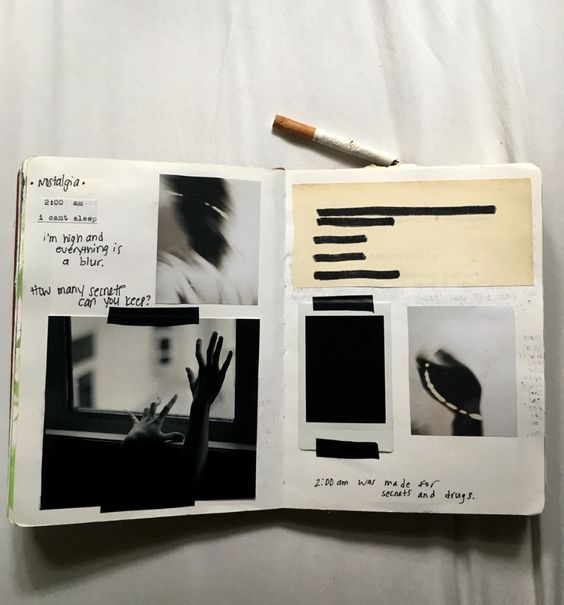 • Nostalgia •
2:00 am
i cant sleep
i'm high and
everything is
a blur.
How many secrets
can you keep?
2:00 am was made for
secrets and drugs.